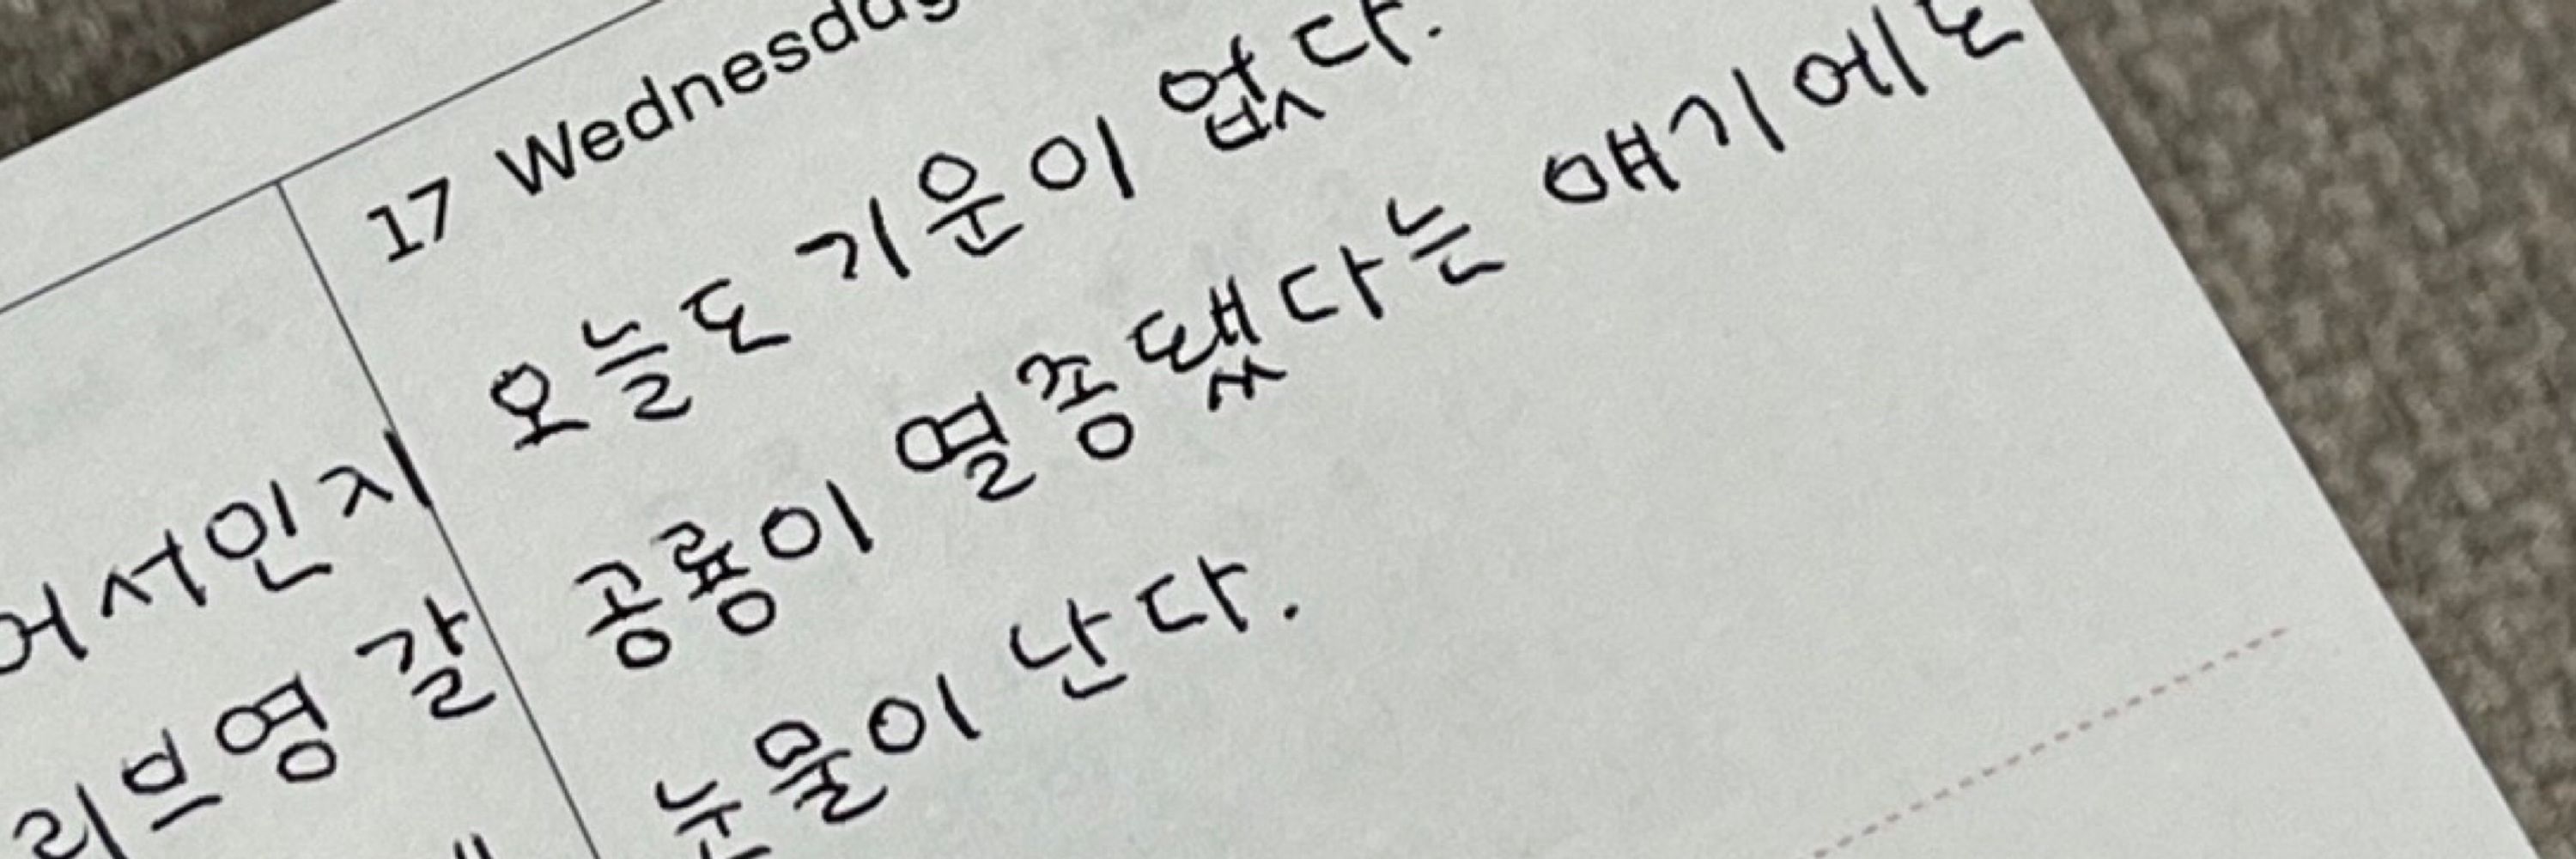 17 Wednesday
오늘도 기운이 없다.
공룡이 멸종됐다는 얘기에도
눈물이 난다.
어서인지
리브영 갈